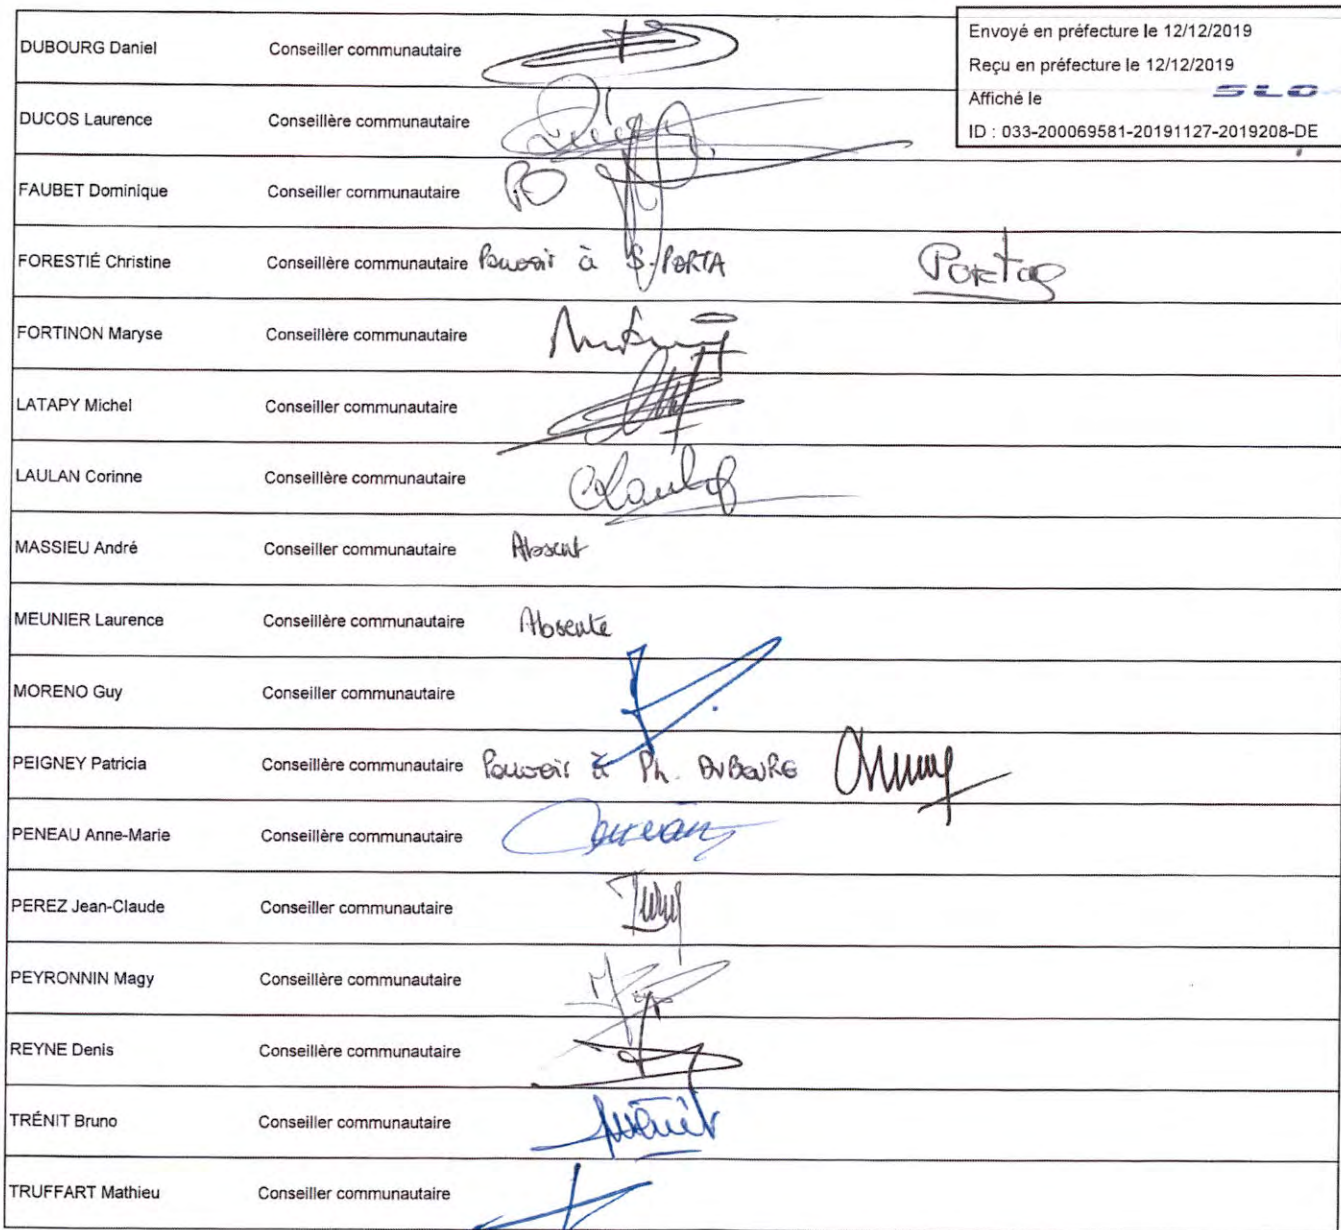 Envoyé en préfecture le 12/12/2019
Reçu en préfecture le 12/12/2019
Affiché le SLO
ID : 033-200069581-20191127-2019208-DE
DUBOURG Daniel Conseiller communautaire
DUCOS Laurence Conseillère communautaire
FAUBET Dominique Conseiller communautaire
FORESTIÉ Christine Conseillère communautaire Pouvoir à S. PORTA Porta
FORTINON Maryse Conseillère communautaire
LATAPY Michel Conseiller communautaire
LAULAN Corinne Conseillère communautaire
MASSIEU André Conseiller communautaire Absent
MEUNIER Laurence Conseillère communautaire Absente
MORENO Guy Conseiller communautaire
PEIGNEY Patricia Conseillère communautaire Pouvoir à Ph. DUBOURG
PENEAU Anne-Marie Conseillère communautaire
PEREZ Jean-Claude Conseiller communautaire
PEYRONNIN Magy Conseillère communautaire
REYNE Denis Conseillère communautaire
TRÉNIT Bruno Conseiller communautaire
TRUFFART Mathieu Conseiller communautaire